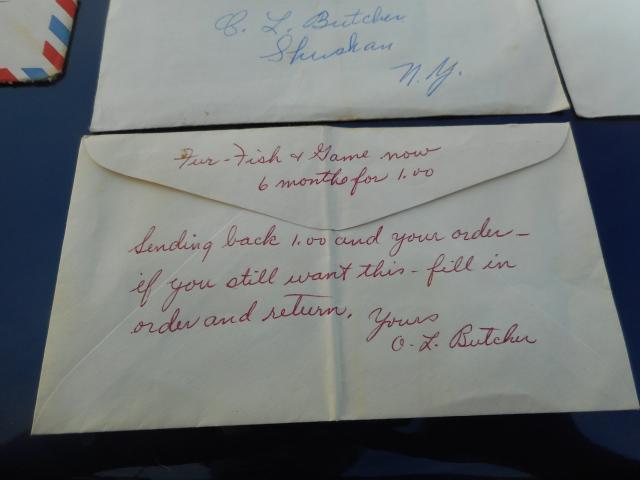 O. L. Butcher
Shushan
N.Y.
Fur-Fish & Game now
6 months for 1.00
Sending back 1.00 and your order -
if you still want this - fill in
order and return. Yours
O. L. Butcher